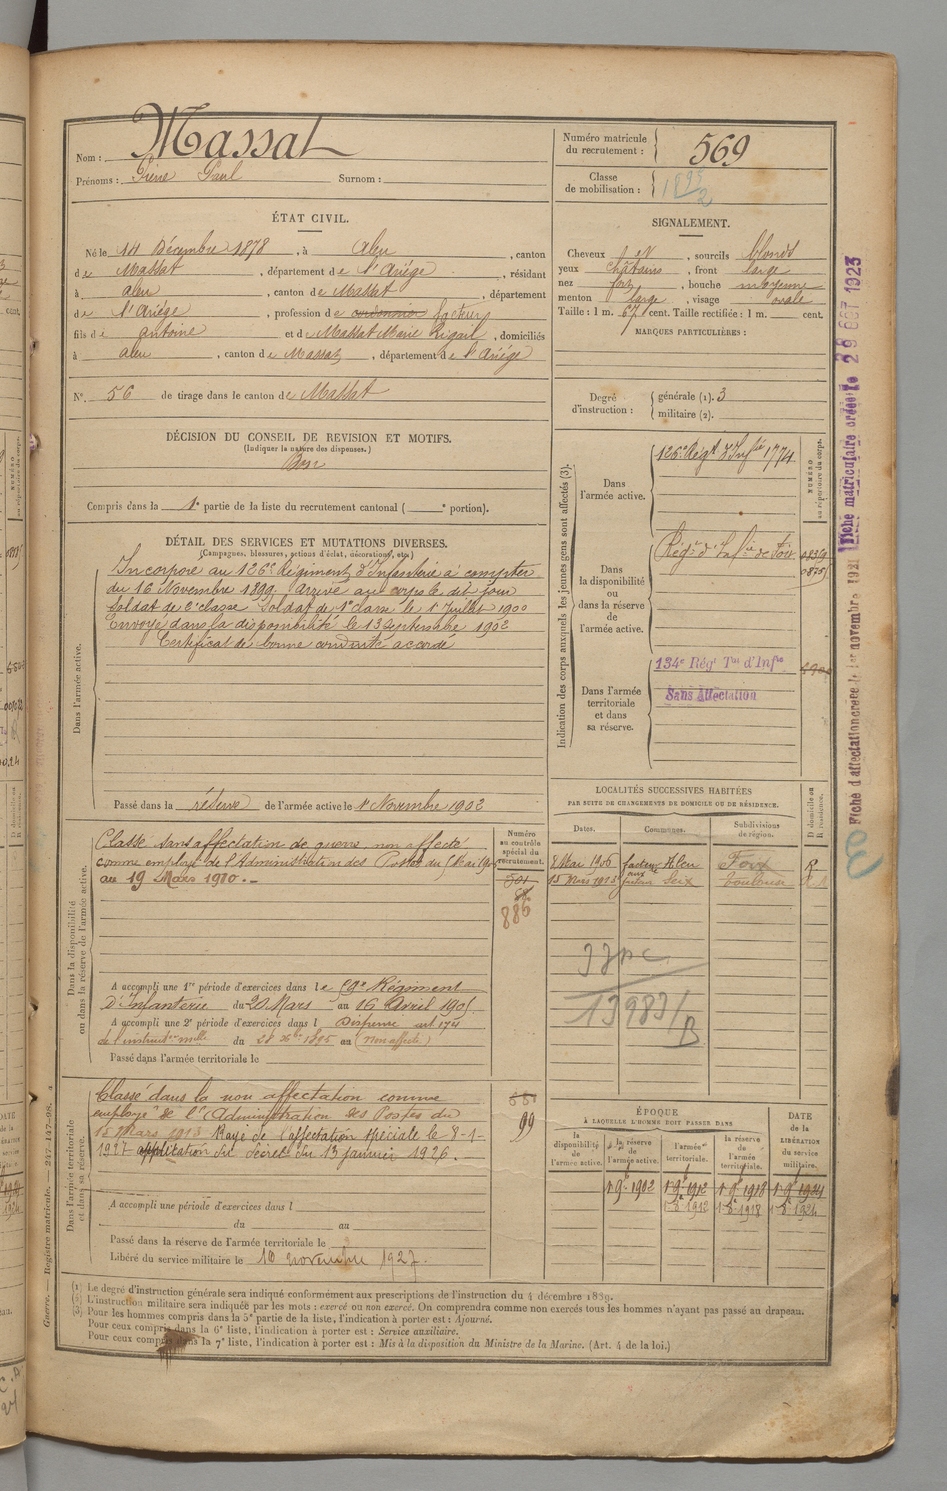 Nom : Massat
Prénoms : Pierre Paul Surnom :
Numéro matricule du recrutement : 569
Classe de mobilisation :
ÉTAT CIVIL.
Né le 14 Décembre 1878, à Aleu, canton
de Massat, département de l'Ariège, résidant
à Aleu, canton de Massat, département
de l'Ariège, profession de cordonnier facteur
fils de Antoine et de Massat Marie Rigail, domiciliés
à Aleu, canton de Massat, département de l'Ariège
N°. 56 de tirage dans le canton de Massat
SIGNALEMENT.
Cheveux, sourcils blonds
yeux châtains, front large
nez fort, bouche moyenne
menton large, visage ovale
Taille : 1 m. 67 cent. Taille rectifiée : 1 m. cent.
MARQUES PARTICULIÈRES :
Degré d'instruction : générale (1). 3
militaire (2).
DÉCISION DU CONSEIL DE REVISION ET MOTIFS.
(Indiquer la nature des dispenses.)
Bon
Compris dans la 1e partie de la liste du recrutement cantonal ( e portion).
DÉTAIL DES SERVICES ET MUTATIONS DIVERSES.
(Campagnes, blessures, actions d'éclat, décorations, etc.)
Dans l'armée active.
Incorporé au 126e Régiment d'Infanterie à compter
du 16 Novembre 1899 Arrivé au corps le dit jour
Soldat de 2e classe Soldat de 1e classe le 1er Juillet 1900
Envoyé dans la disponibilité le 13 Septembre 1902
Certificat de bonne conduite accordé
Passé dans la réserve de l'armée active le 1er Novembre 1902
Indication des corps auxquels les jeunes gens sont affectés (3).
NUMÉRO au répertoire du corps.
Dans l'armée active.
126e Régt d'Infie 1774
Dans la disponibilité ou dans la réserve de l'armée active.
Régt d'Infie de Foix
Dans l'armée territoriale et dans sa réserve.
134e Régt Tal d'Infie
Sans Affectation
Dans la disponibilité ou dans la réserve de l'armée active.
Classé sans affectation de guerre non affecté
comme employé de l'Administration des Postes du
au 19 Mars 1910. -
Numéro au contrôle spécial du recrutement.
886
A accompli une 1re période d'exercices dans le Régiment
D'Infanterie du 20 Mars au 16 Avril 1905
A accompli une 2e période d'exercices dans l Dispensé art 174
de l'instruction du 28 Xbre 1895 au (non affecté)
Passé dans l'armée territoriale le
LOCALITÉS SUCCESSIVES HABITÉES
PAR SUITE DE CHANGEMENTS DE DOMICILE OU DE RÉSIDENCE.
Dates. Communes. Subdivisions de région. D domicile ou R résidence.
8 Mai 1906 facteur Aleu Foix R
15 Mars 1913 facteur aux Seix Toulouse
13983/B
Dans l'armée territoriale et dans sa réserve.
Classé dans la non affectation comme
employé de l'Administration des Postes du
15 Mars 1913 Rayé de l'affectation spéciale le 8-1-
1927 application du décret du 13 janvier 1926.
99
A accompli une période d'exercices dans l
du au
Passé dans la réserve de l'armée territoriale le
Libéré du service militaire le 10 novembre 1927.
ÉPOQUE
À LAQUELLE L'HOMME DOIT PASSER DANS
la disponibilité de l'armée active. la réserve de l'armée active. l'armée territoriale. la réserve de l'armée territoriale.
DATE de la LIBÉRATION du service militaire.
1-9e 1902 1-9e 1912 1-9e 1918 1-9e 1924
1-8e 1912 1-8e 1918 1-8e 1924
(1) Le degré d'instruction générale sera indiqué conformément aux prescriptions de l'instruction du 4 décembre 1889.
(2) L'instruction militaire sera indiquée par les mots : exercé ou non exercé. On comprendra comme non exercés tous les hommes n'ayant pas passé au drapeau.
(3) Pour les hommes compris dans la 5e partie de la liste, l'indication à porter est : Ajourné.
Pour ceux compris dans la 6e liste, l'indication à porter est : Service auxiliaire.
Pour ceux compris dans la 7e liste, l'indication à porter est : Mis à la disposition du Ministre de la Marine. (Art. 4 de la loi.)
Guerre. — Registre matricule. — 247-147-98.
Fiche d'affectation créée le 1er novembre 1921
Fiche matriculaire créée le 29 OCT 1923